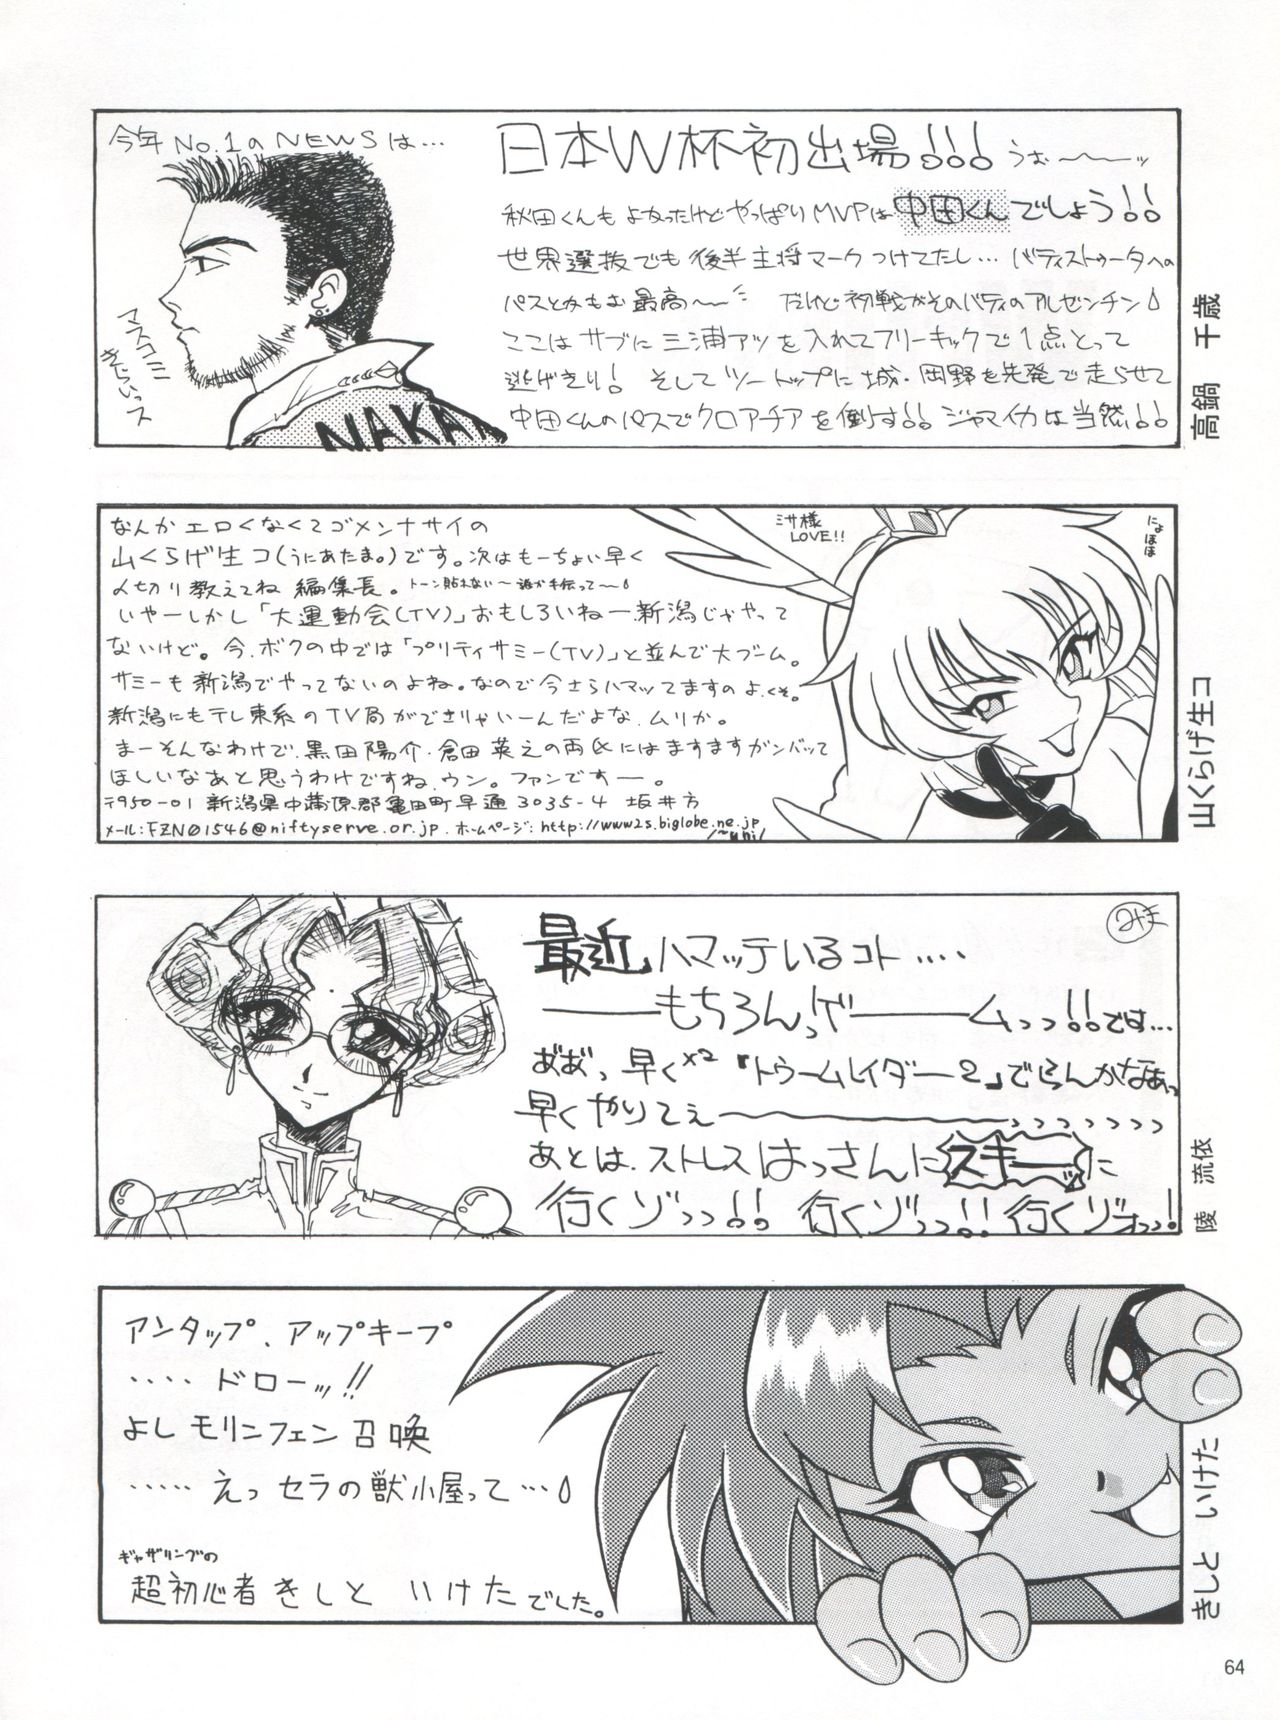 今年 No.1のNEWSは…
日本W杯初出場!!! うぉ〜〜ッ
秋田くんもよかったけどやっぱりMVPは中田くんでしょう!!
世界選抜でも後半主将マークつけてたし… バティストゥータへの
パスとかもぉ最高〜〜 だけど初戦がそのバティのアルゼンチン
ここはサブに三浦アツを入れてフリーキックで1点とって
逃げきり! そしてツートップに城・岡野を先発で走らせて
中田くんのパスでクロアチアを倒す!! ジャマイカは当然!!
マスコミ
きらいっス
NAKA
高鍋 千歳
なんかエロくなくてゴメンナサイの
山くらげ生コ(うにあたま。)です。次はもーちょい早く
〆切り教えてね 編集長。トーン貼れない〜誰か手伝って〜
いやーしかし「大運動会(TV)」おもしろいねー新潟じゃやって
ないけど。今、ボクの中では「プリティサミー(TV)」と並んで大ブーム。
サミーも新潟でやってないのよね。なので今さらハマッてますのよ、くそ。
新潟にもテレ東系のTV局ができりゃいーんだよな、ムリか。
まーそんなわけで、黒田陽介・倉田英之の両氏にはますますガンバッて
ほしいなあと思うわけですね、ウン。ファンですー。
〒950-01 新潟県中蒲原郡亀田町早通3035-4 坂井方
メール:FZN01546@niftyserve.or.jp. ホームページ:http://www2s.biglobe.ne.jp
/~uni/
ミサ様
LOVE!!
にょほほ
山くらげ生コ
最近ハマッテいるコト‥‥
――もちろんっゲ――ムっっ!!です…
あ゛あ゛っ早く×2『トゥームレイダー2』でらんかなぁっ
早くやりてぇ〜〜っっっっっっっ
あとは、ストレスはっさんにスキーッに
行くゾっっ!! 行くゾっっ!! 行くゾォっっ!
陵 流依
アンタップ、アップキープ
‥‥ ドローッ!!
よしモリンフェン召喚
‥‥‥ えっセラの獣小屋って…
ギャザリングの
超初心者きしと いけたでした。
きしと いけた
64